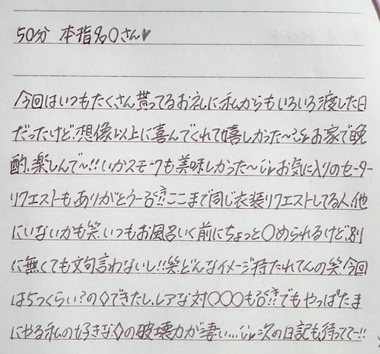 50分 本指名○さん♥
今回はいつもたくさん貰ってるお礼に私からもいろいろ渡した日
だったけど、想像以上に喜んでくれて嬉しかった〜 お家で晩
酌、楽しんで〜!!いかスモークも美味しかった〜 お気に入りのセーター
リクエストもありがとう〜 ここまで同じ衣装リクエストしてる人、他
にいないかも笑 いつもお風呂いく前にちょっと○められるけど、別
に無くても文句言わないし!!笑 どんなイメージ持たれてんの笑 今回
は5つくらい?の◇できたし、レアな対○○○も でもやっぱたま
にやる私の好きな◇の破壊力が凄い… 次の日記も待ってて〜!!